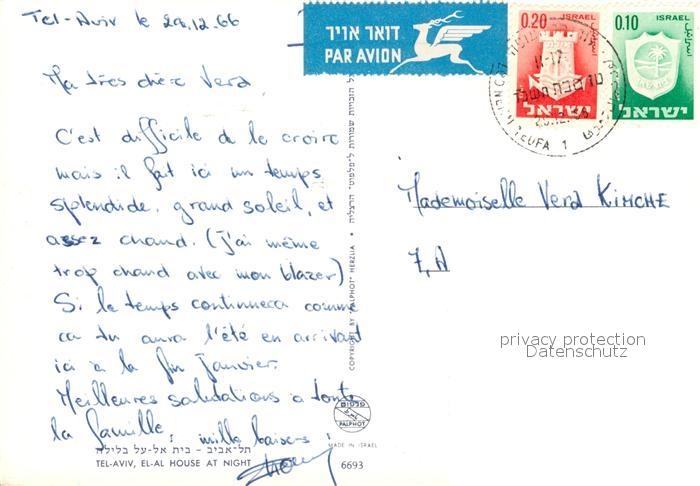 Tel-Aviv le 29.12.66
Ma très chère Vera,
C'est difficile de le croire
mais il fait ici un temps
splendide, grand soleil, et
assez chaud. (j'ai même
trop chaud avec mon blazer)
Si le temps continuera comme
ca tu aura l'été en arrivant
ici à la fin Janvier.
Meilleures salutations à toute
la famille, mille baisers !
תל-אביב - בית אל-על בלילה
TEL-AVIV, EL-AL HOUSE AT NIGHT
MADE IN ISRAEL
6693
PALPHOT
COPYRIGHT BY "PALPHOT" HERZLIA
דואר אויר
PAR AVION
0.20 ISRAEL
ישראל
0.10 ISRAEL
ישראל
11-12
TEUFA 1
Mademoiselle Vera KIMCHE
privacy protection
Datenschutz